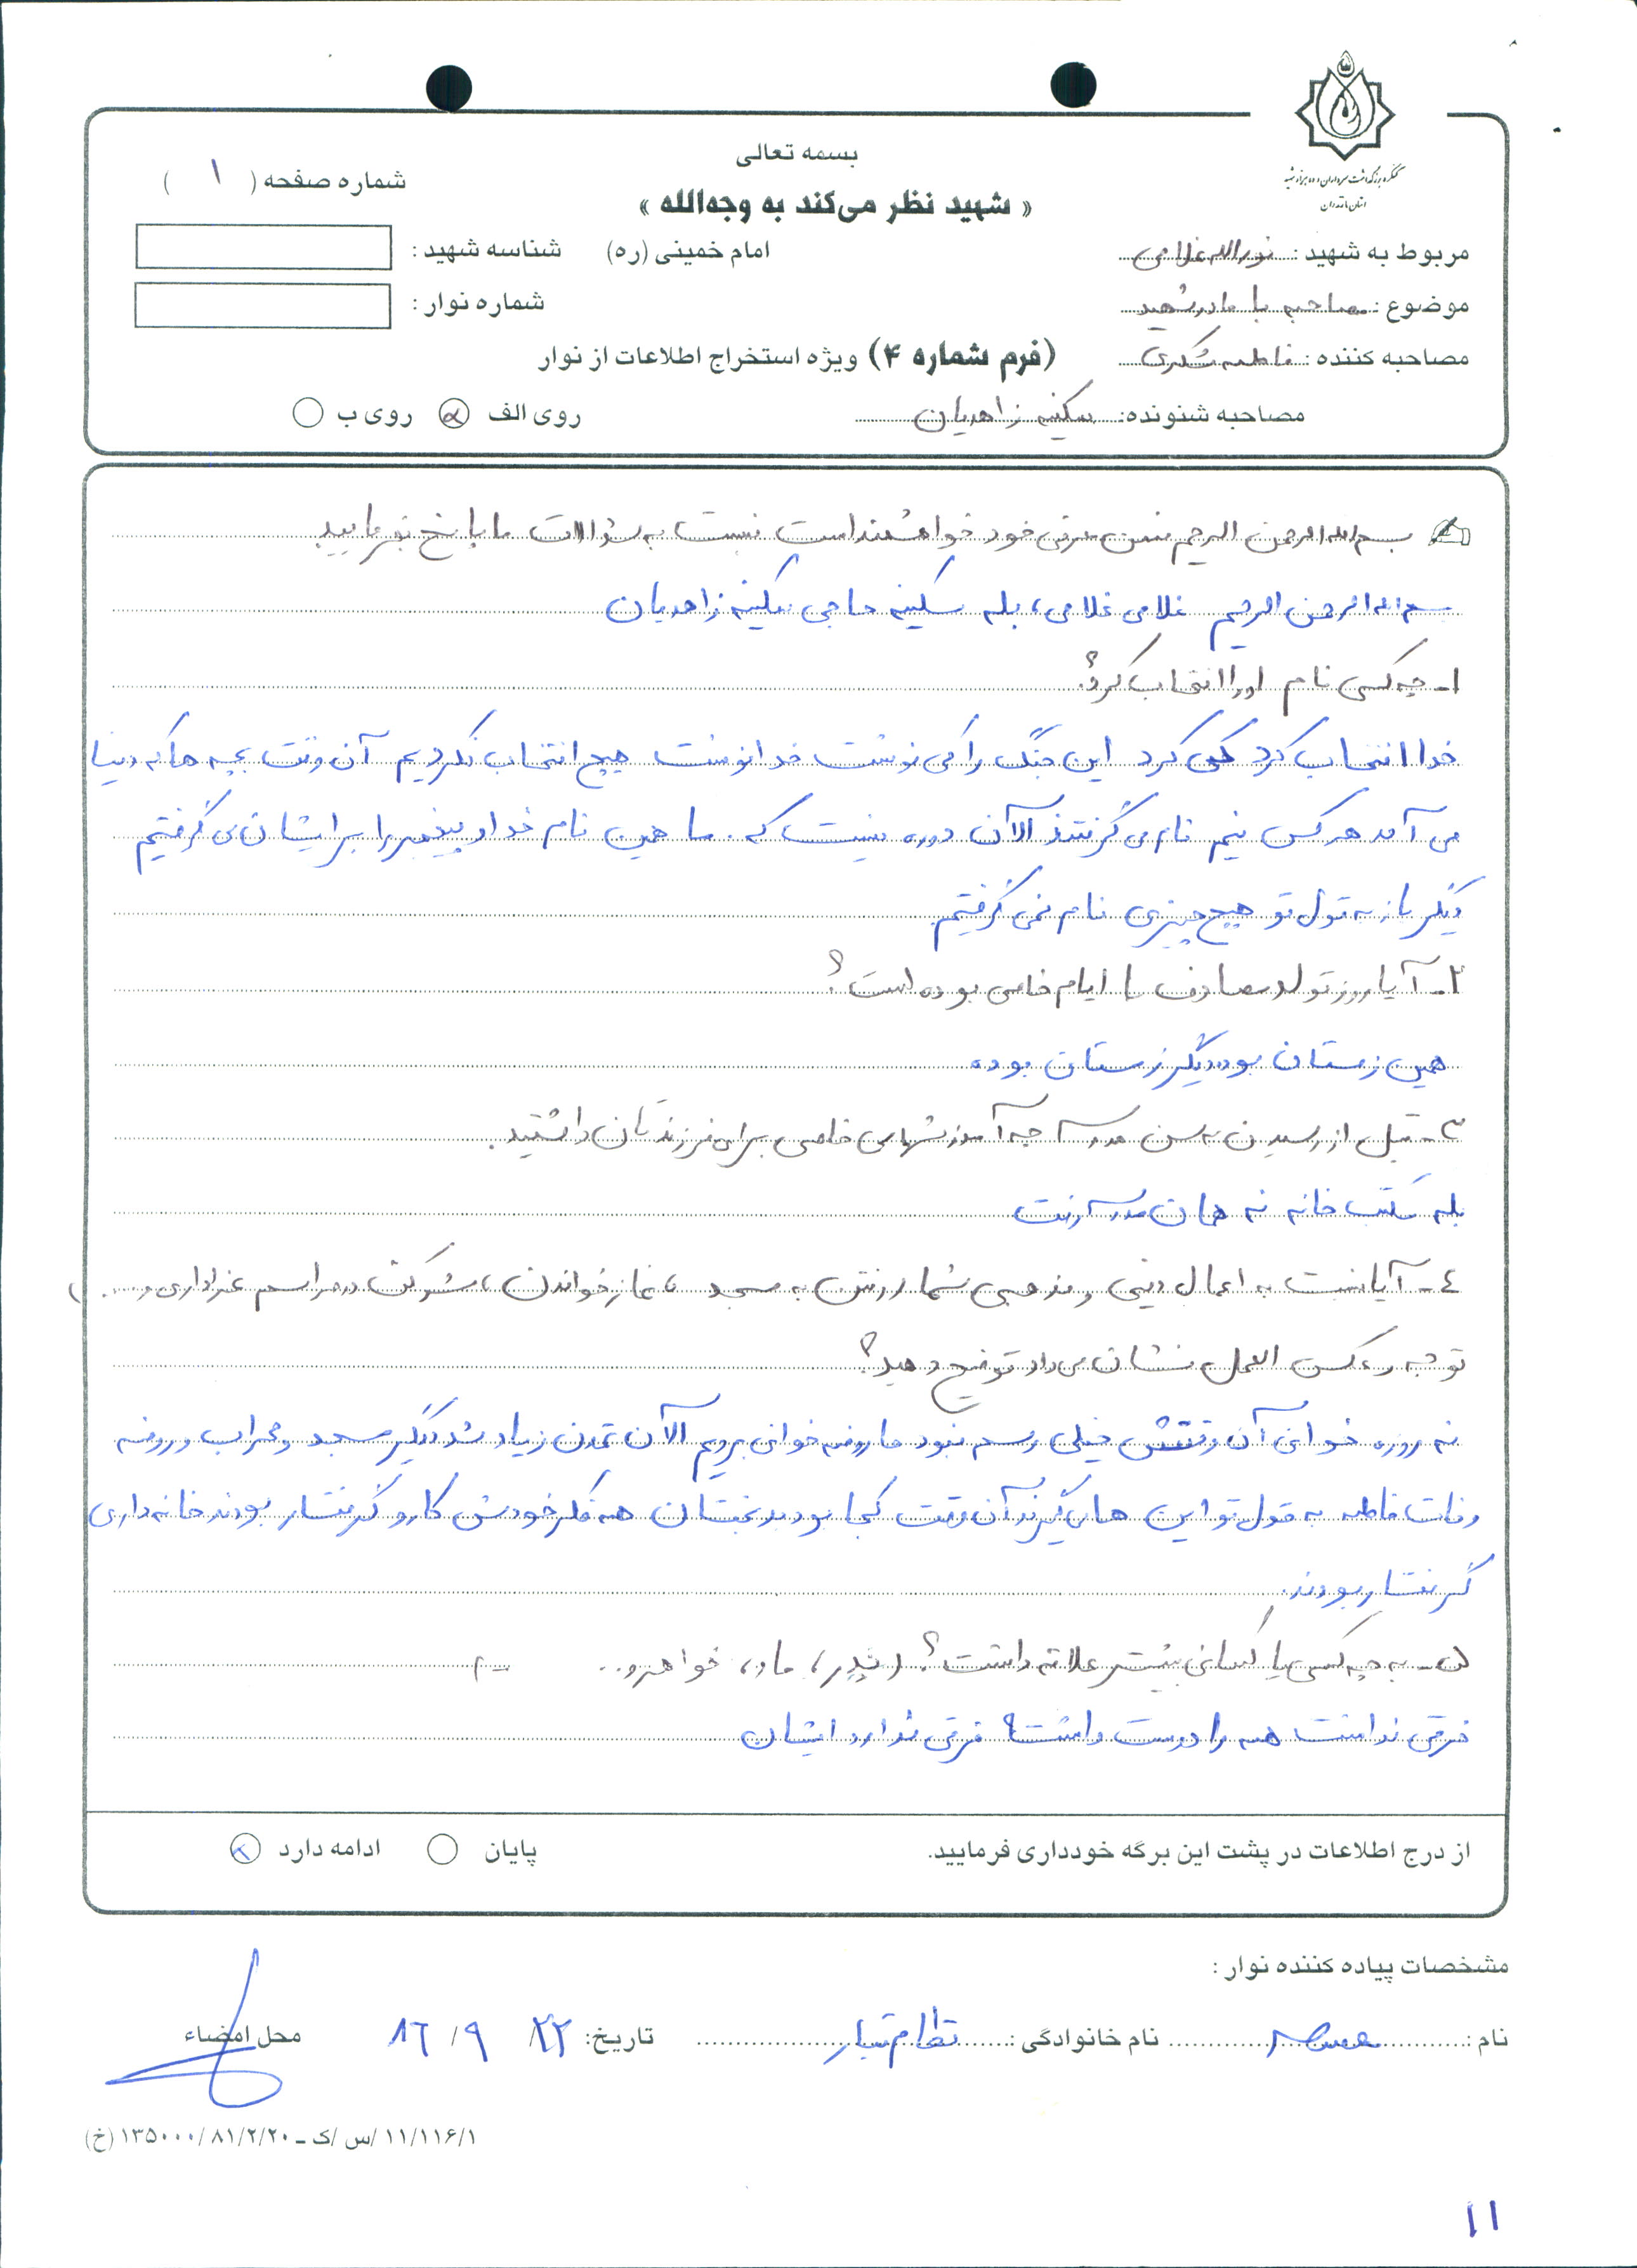 بسمه تعالی
« شهید نظر می‌کند به وجه‌الله »
امام خمینی (ره)
شماره صفحه ( ۱ )
کنگره بزرگداشت سرداران و ده هزار شهید
استان مازندران
مربوط به شهید : نورالله غلامی
شناسه شهید :
موضوع : مصاحبه با مادر شهید
شماره نوار :
مصاحبه کننده : فاطمه شکری
(فرم شماره ۴) ویژه استخراج اطلاعات از نوار
مصاحبه شنونده: سکینه زاهدیان
روی الف روی ب
بسم الله الرحمن الرحیم ضمن معرفی خود خواهشمند است نسبت به سؤالات ما پاسخ بفرمایید
بسم الله الرحمن الرحیم غلامی غلامی، بله سکینه حاجی سکینه زاهدیان
۱- چه کسی نام او را انتخاب کرد؟
خدا انتخاب کرد کی کرد این جنگ را کی نوشت خدا نوشت هیچ انتخاب نکردیم آن وقت بچه ها که دنیا
می آمد هر کس نام می گرفتند الآن دوره نیست که ما همین نام خدا و پیغمبر را برایشان می گرفتیم
دیگر باز به قول تو هیچ چیزی نام نمی گرفتیم
۲- آیا روز تولد مصادف با ایام خاصی بوده است؟
همین زمستان بود دیگر زمستان بوده
۳- قبل از رسیدن به سن مدرسه چه آموزشهای خاصی برای فرزندتان داشتید.
بله مکتب خانه نه همان مدرسه رفت
٤- آیا نسبت به اعمال دینی و مذهبی شما (رفتن به مسجد ، نماز خواندن ، شرکت در مراسم عزاداری و .... )
توجه و عکس العمل نشان می داد توضیح دهید؟
نه روزه خوانی آن وقتش خیلی رسم نبود ما روضه خوانی برویم الآن تمدن زیاد شد دیگر مسجد و محراب و روضه
وفات فاطمه به قول تو این ها می گیرند آن وقت کجا بود بدبختان همه فکر خودش کار و گرفتار بودند خانه داری
گرفتار بودند.
۵- به چه کسی یا کسانی بیشتر علاقه داشت؟ (پدر، مادر، خواهر و.. )
فرقی نداشت همه را دوست داشت؟ فرقی ندارد ایشان
از درج اطلاعات در پشت این برگه خودداری فرمایید.
پایان ادامه دارد
مشخصات پیاده کننده نوار :
نام : معصومه نام خانوادگی : نظام تبار تاریخ: ۲۲/ ۹/ ۸٦ محل امضاء
۱۱/۱۱۶/۱ /س /ک ـ ۱۳۵۰۰۰/۸۱/۲/۲۰ (خ)
۱۱